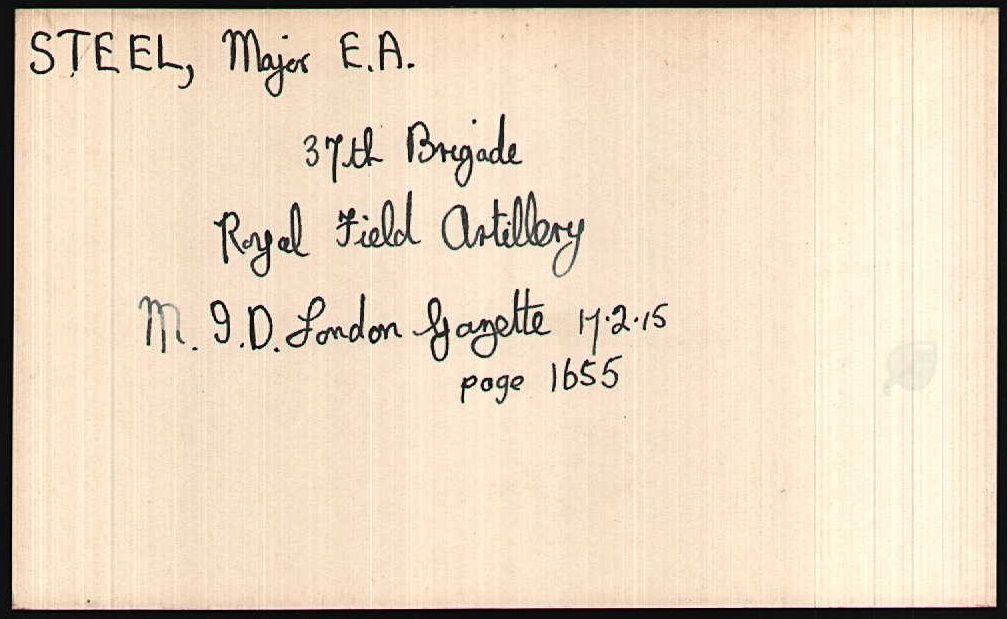 STEEL, Major E.A.
37th Brigade
Royal Field Artillery
M.I.D. London Gazette 17.2.15
page 1655